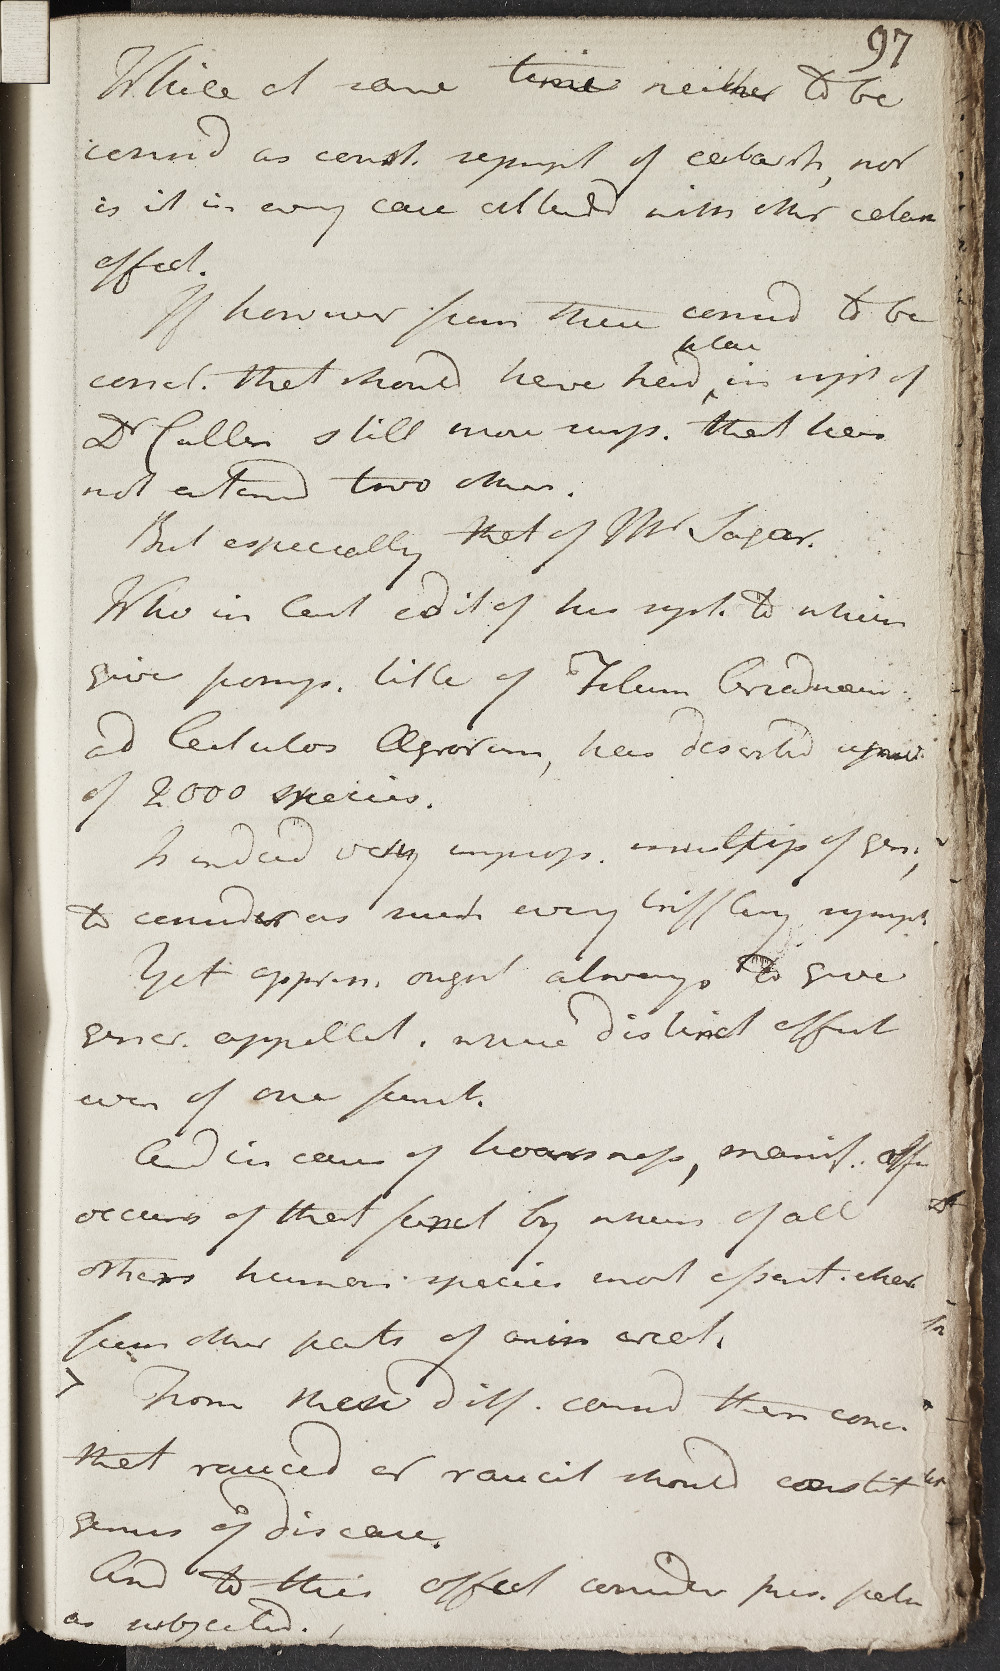 97
While at same time neither to be
consid as const. sympt of catarrh, nor
is it in every case attended with other catarr
effect.
If however from these consid to be
correct. that should have had place in syst of
Dr Cullen still more surp. that has
not entered two others.
But especially that of Mr Sagar.
Who in last edit of his syst. to which
give pomp. title of Filum Ariadneum
ad Lectulos Ægrorum, has described upwd
of 2000 species.
Is indeed very improp. multip of gen.,
to consider as such every triffling sympt.
Yet apprn. ought always to give
gener. appellat. where distinct effect
even of one funct.
And in case of hoarsness, manif. affn
occurs of that funct by which of all
others human species most essent. char
from other parts of anim creat.
From these diff. consid then conc.
that rauced or raucit should constit
genus of disease.
And to this effect consider pres. patn
as subjected.